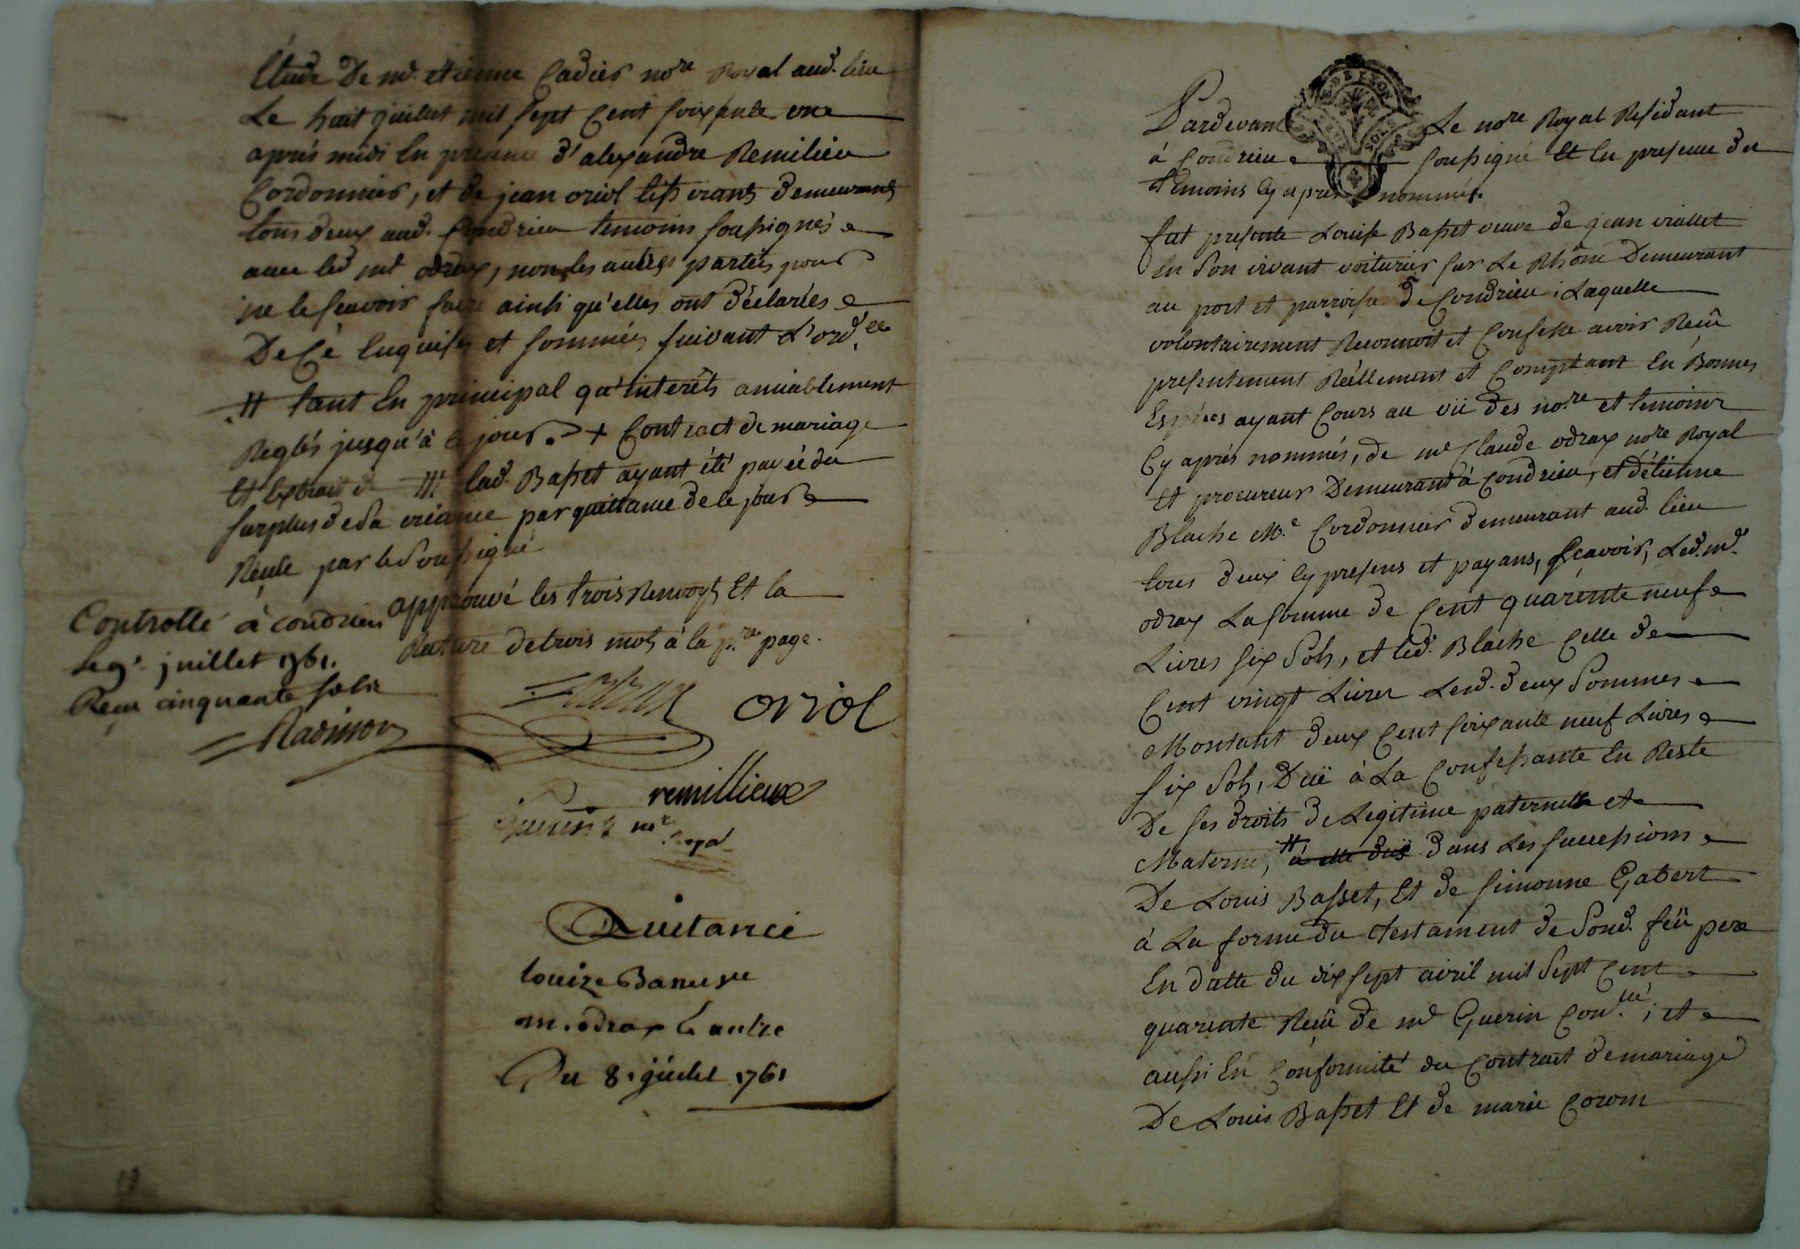 Pardevant Le no.re Royal Résidant
à Condrieu soussigné Et En presence des
témoins Cy apres nommés.
fut presente Louise Basset veuve de jean viallet
En Son vivant voiturier sur Le Rhône Demeurant
au port et parroisse de Condrieu ; Laquelle
volontairement Reconnoit et Confesse avoir Reçu
presentement Réellement et Comptant En Bonnes
Espèces ayant Cours au vû des no.re et temoins
Cy après nommés, de m.e Claude odrax no.re Royal
Et procureur Demeurant à Condrieu, et d'étienne
Blache M.e Cordonnier demeurant aud. lieu
tous deux Cy presens et payans, sçavoir, Led. m.e
odrax La somme de Cent quarente neuf
Livres six Sols, et led. Blache Celle de
Cent vingt Livres Lesd. deux Sommes
Montant deux Cent soixante neuf Livres
six Sols, Düe à La Confessante En Reste
De ses droits de Legitime paternelle et
Maternel, # à elle düe dans Les successions
De Louis Basset, Et de simonne Gabert
à La forme du testament de Sond. feü pere
En datte du dix sept avril mil Sept Cent
quarente Reçu de m.e Guerin ; et
aussi En Conformité du Contract de mariage
De Louis Basset Et de marie Corom
Etude De m.e étienne Cadier no.re Royal aud. lieu
Le huit juillet mil sept Cent soixante une
après midi En presence d'alexandre Remilieu
Cordonnier, et de jean oriol tisserant demeurants
tous deux aud. Condrieu temoins soussignés
avec led. m.e odrax, non les autres parties pour
ne le sçavoir faire ainsi qu'elles ont déclarées
De Ce Enquises et sommées suivant L'ord.ce
# tant En principal qu'interêts amiablement
Reglés jusqu'à ce jour. + Contract de mariage
Et Extrait de # lad. Basset ayant été payée du
surplus de Sa créance par quittance de ce jour
Reçue par le Soussigné
approuvé les trois Renvoys Et la
Rature de trois mots à la p.re page.
Controllé à condrieu
le 9.e juillet 1761.
Reçu cinquante sols
Ravinon
odrax oriol
remillieux
Guerin
Royal
Quitance
louize Basset
m. odrax & autre
Du 8. juillet 1761